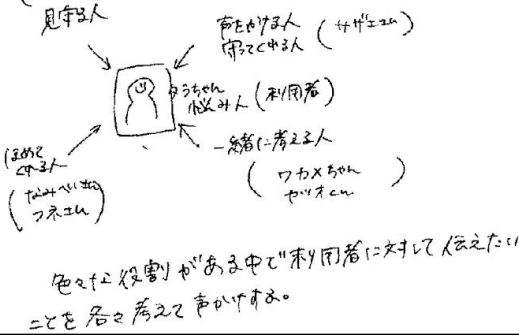 見守る人
声をかける人
守ってくれる人 (サザエさん)
タラちゃん
悩み人 (利用者)
ほめて
くれる人
(なみへいさん
フネさん)
一緒に考える人
(ワカメちゃん
カツオくん)
色々な役割がある中で利用者に対して伝えたい
ことを各々考えて声かけする。